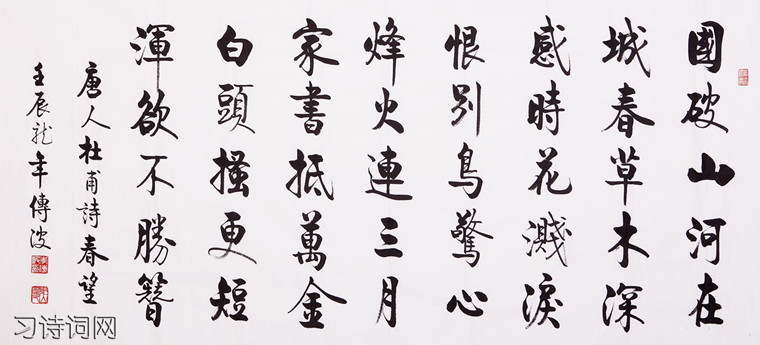 國破山河在
城春草木深
感時花濺淚
恨別鳥驚心
烽火連三月
家書抵萬金
白頭搔更短
渾欲不勝簪
唐人杜甫詩春望
壬辰龙年傳波
习诗词网